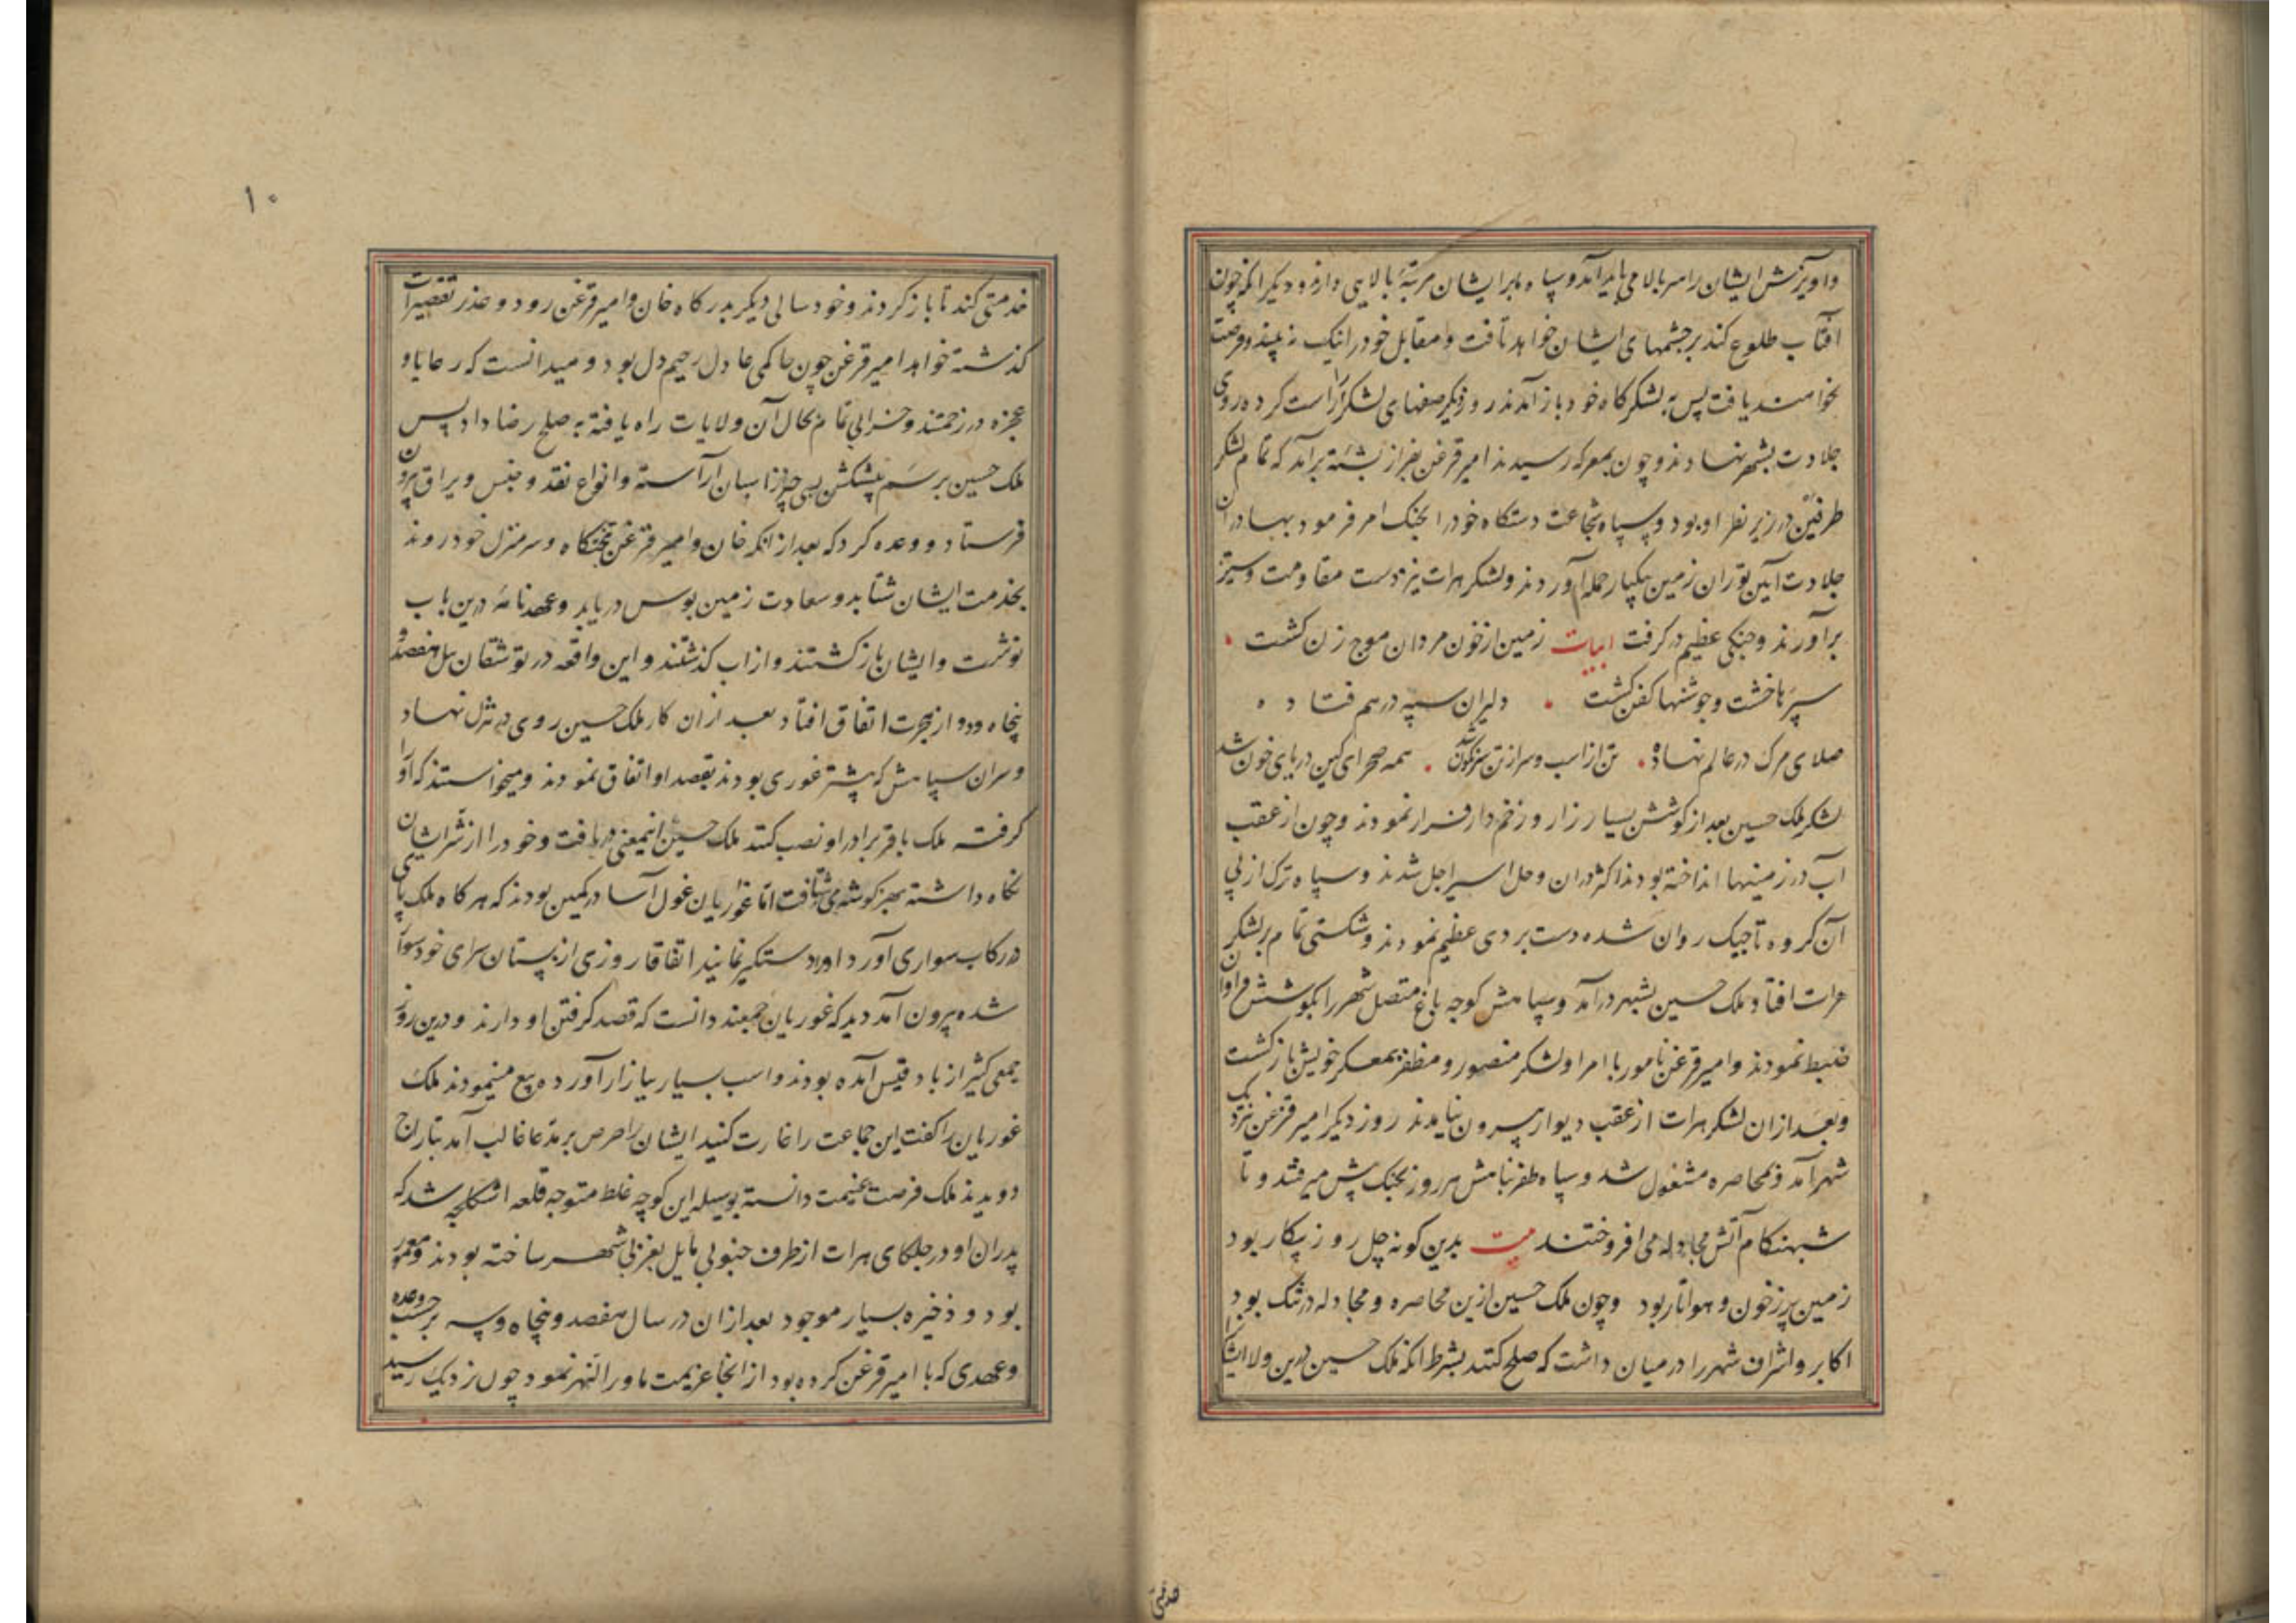 و آویزش ایشان را سر بالا می باید آمد و سپاه ما بر ایشان مرتبهٔ بالایی دارند و دیگر آنکه چون
افتاب طلوع کند بر چشمهای ایشان خواهد تافت و مقابل خود را نیک نه بینند و فرصت
نخواهند یافت پس به لشکرگاه خود باز آمدند روز دیگر صفهای لشکر را راست کرده روی
جلادت بشهر نهادند و چون بمعرکه رسیدند امیر قزغن بفراز پشته برآمد که تمام لشکر
طرفین در زیر نظر او بود و سپاه شجاعت دستگاه خود را بجنک امر فرمود بهادران
جلادت آیین توران زمین بیکبار حمله آوردند و لشکر هرات نیز دست مقاومت و ستیز
برآوردند و جنکی عظیم در گرفت ابیات زمین از خون مردان موج زن کشت
سپرها خشت و جوشنها کفن کشت دلیران سپه در هم فتاده
صلای مرک در عالم نهاده تن از اسب و سر از تن سرنکون شد همه صحرای کین دریای خون شد
لشکر ملک حسین بعد از کوشش بسیار زار و زخم دار فرار نمودند و چون از عقب
آب در زمینها انداخته بودند اکثر در ان وحل اسیر اجل شدند و سپاه ترک از پی
آن کروه تاجیک روان شده دست بردی عظیم نمودند و شکستی تمام بر لشکر
هرات افتاد ملک حسین بشهر درآمد و سپاهش کوچه باغ متصل شهر را بکوشش فراوان
ضبط نمودند و امیر قزغن نامور با امرا و لشکر منصور و مظفر بمعسکر خویش باز کشت
و بعد از ان لشکر هرات از عقب دیوار بیرون نیامدند روز دیکر امیر قزغن نزدیک
شهر آمد و بمحاصره مشغول شد و سپاه ظفر پناهش هر روز بجنک پیش میرفتند و تا
شبهنکام آتش مجادله می افروختند بیت بدین کونه چل روز پیکار بود
زمین پر ز خون و هوا تار بود و چون ملک حسین ازین محاصره و مجادله در تنک بود
اکابر و اشراف شهر را در میان داشت که صلح کنند بشرط انکه ملک حسین درین ولا ایشان را
خدمتی
۱۰
خدمتی کند تا باز کردند و خود سالی دیکر بدرکاه خان و امیر قزغن رود و عذر تقصیرات
کذشته خواهد امیر قزغن چون حاکمی عادل رحیم دل بود و میدانست که رعایا و
عجزه در زحمتند و خرابی تمام بحال آن ولایات راه یافته به صلح رضا داد پس
ملک حسین برسم پیشکش بسی چیز از اسبان آراسته و انواع نقد و جنس و یراق بیرون
فرستاد و وعده کرد که بعد از انکه خان و امیر قزغن بتختکاه و سر منزل خود روند
بخدمت ایشان شتابد و سعادت زمین بوس دریابد و عهدنامهٔ درین باب
نوشت و ایشان باز کشتند و از اب کذشتند و این واقعه در توشقان ئیل هفصد و
پنجاه و دو از هجرت اتفاق افتاد بعد از ان کار ملک حسین روی در تنزل نهاد
و سران سپاهش که بیشتر غوری بودند بقصد او اتفاق نمودند و میخواستند که او را
کرفته ملک باقر برادر او نصب کنند ملک حسین اینمعنی دریافت و خود را از شر ایشان
نکاه داشته بهر کوشه می شتافت اما غوریان غول آسا در کمین بودند که هر کاه ملک پای
در رکاب سواری آورد او را دستکیر نمایند اتفاقا روزی از بستان سرای خود سوار
شده بیرون آمد دید که غوریان جمعند دانست که قصد کرفتن او دارند و درین روز
جمعی کثیر از بادقیس آمده بودند و اسب بسیار ببازار آورده بیع مینمودند ملک
غوریان را کفت این جماعت را غارت کنید ایشان را حرص بر مدعا غالب آمد بتاراج
دویدند ملک فرصت غنیمت دانسته بوسیله این کوچه غلط متوجه قلعه اشکلجه شد که
پدران او در جلکای هرات از طرف جنوبی مایل بغربی شهر ساخته بودند و معمور
بود و ذخیره بسیار موجود بعد از ان در سال هفصد و پنجاه و سه بر حسب وعده
و عهدی که با امیر قزغن کرده بود از انجا عزیمت ماورالنهر نمود چون نزدیک رسید